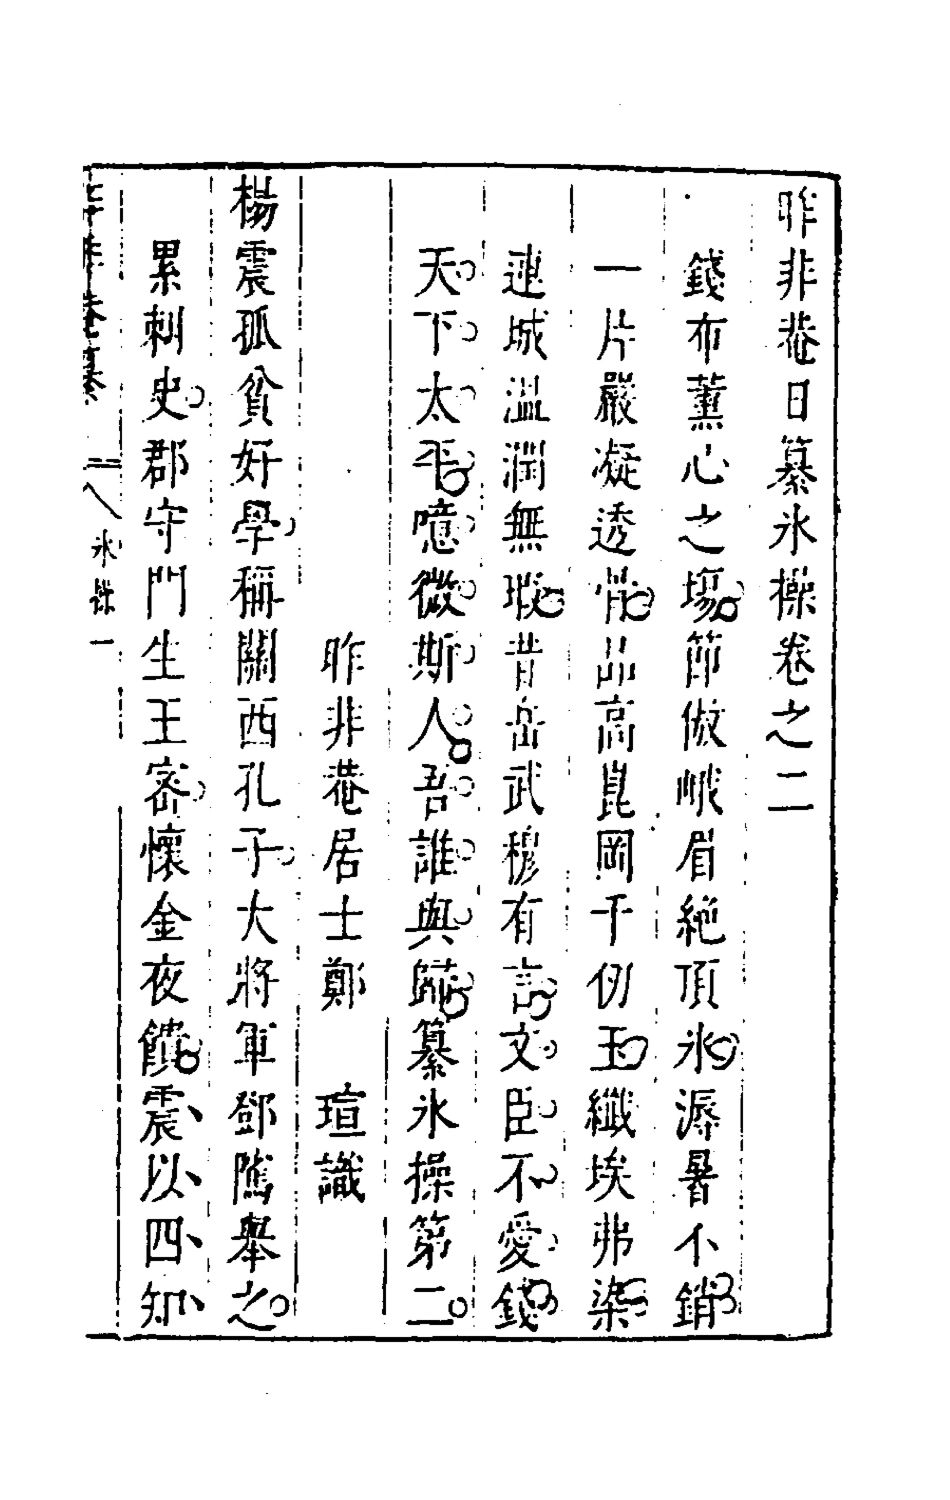 昨非菴日纂氷操卷之二
錢布薰心之塲節倣峨眉絶頂氷溽暑不銷
一片嚴凝透骨品高崑岡千仞玉纖埃弗染
連城温潤無瑕昔岳武穆有言文臣不愛錢
天下太平噫微斯人吾誰與歸纂氷操第二
昨非菴居士鄭 瑄識
楊震孤貧好學稱關西孔子大將軍鄧隲舉之
累刺史郡守門生王密懷金夜饋震以四知
昨非菴纂 二 氷操 一